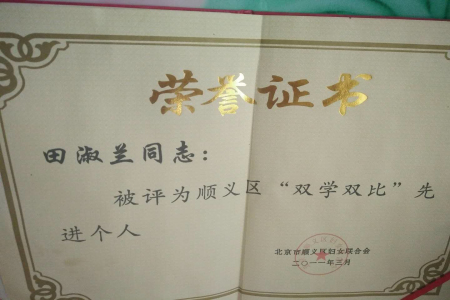 荣誉证书
田淑兰同志：
被评为顺义区“双学双比”先
进个人
北京市顺义区妇女联合会
二〇一一年三月